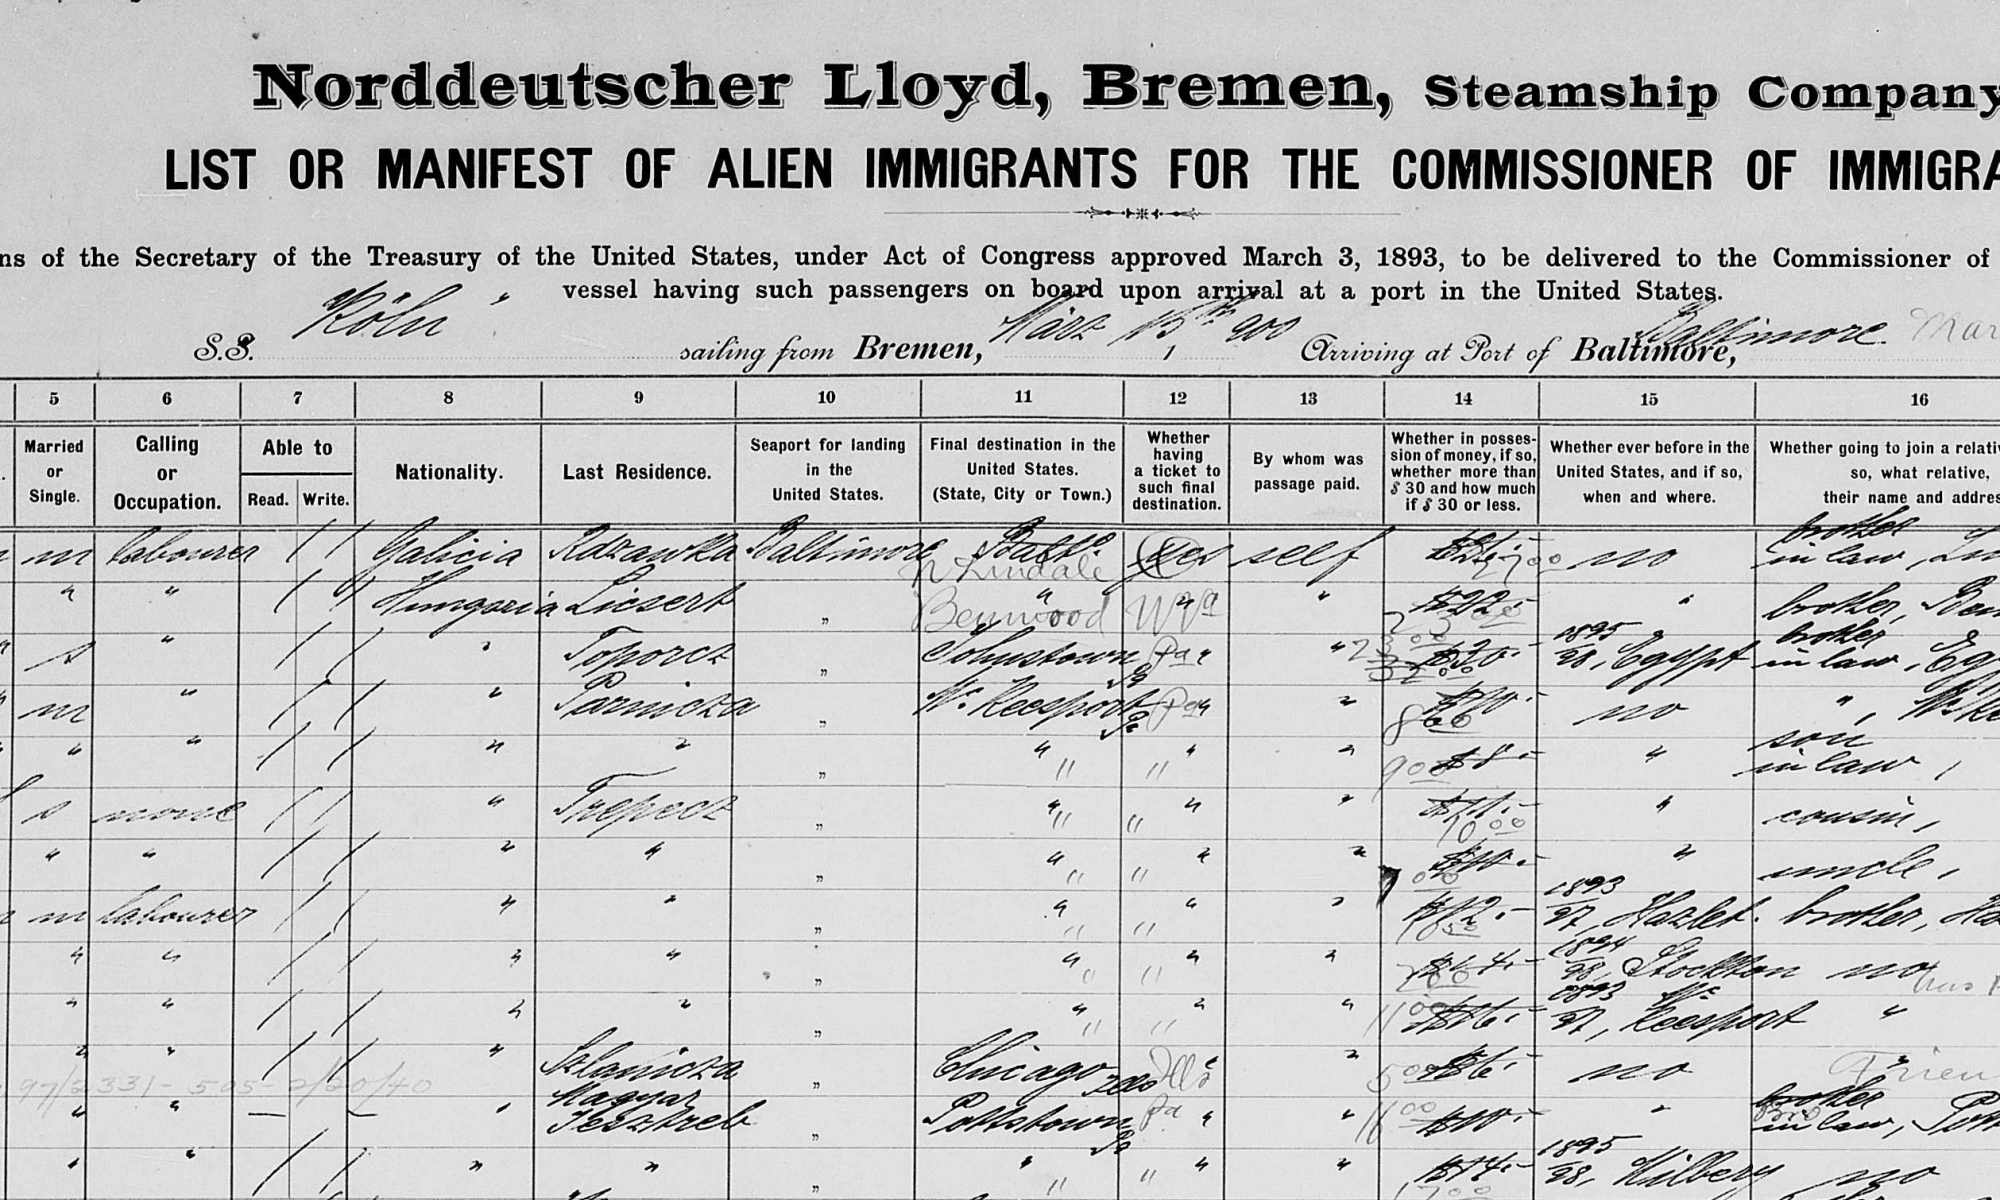 Norddeutscher Lloyd, Bremen, Steamship Company
LIST OR MANIFEST OF ALIEN IMMIGRANTS FOR THE COMMISSIONER OF IMMIGRA
ns of the Secretary of the Treasury of the United States, under Act of Congress approved March 3, 1893, to be delivered to the Commissioner of
vessel having such passengers on board upon arrival at a port in the United States.
S.S. Köln sailing from Bremen, März 15th 1900 Arriving at Port of Baltimore, Baltimore. Mar
5 6 7 8 9 10 11 12 13 14 15 16
Married or Single. Calling or Occupation. Able to Read. Write. Nationality. Last Residence. Seaport for landing in the United States. Final destination in the United States. (State, City or Town.) Whether having a ticket to such final destination. By whom was passage paid. Whether in possession of money, if so, whether more than $ 30 and how much if $ 30 or less. Whether ever before in the United States, and if so, when and where. Whether going to join a relati so, what relative, their name and addres
m labourer / / Galicia Rdzawka Baltimore Balto yes self no brother in law,
Lindale
" " / Hungaria Licsert " " " " brother, Ben
Benwood WVa
s " / / " Toporcz " Johnstown Pa " " 1895/98, Egypt brother in law, Eg
m " / / " Parnicza " Mc Keesport Pa " " no " , Mc Ke
" " / / " " " " " " $8.- " son in law,
s none / / " Trepecz " " " " " cousin,
" " / / " " " " " " " uncle,
m labourer / / " " " " " " $12.- 1893/97, Hazlet. brother, Ha
" " / / " " " " " " 1894/98, Stockton no
" " / / " " " " " " 1893/97, Mc Keesport "
" " / / " Szlanicza " Chicago Ills " " $6.- no Frien
97/2331-505-2/20/40
" " — — " Magyar Jesztreb " Pottstown Pa " " $10.- " brother in law, Pott
" " / / " " " " " " $14.- 1895/98, Kilbery no